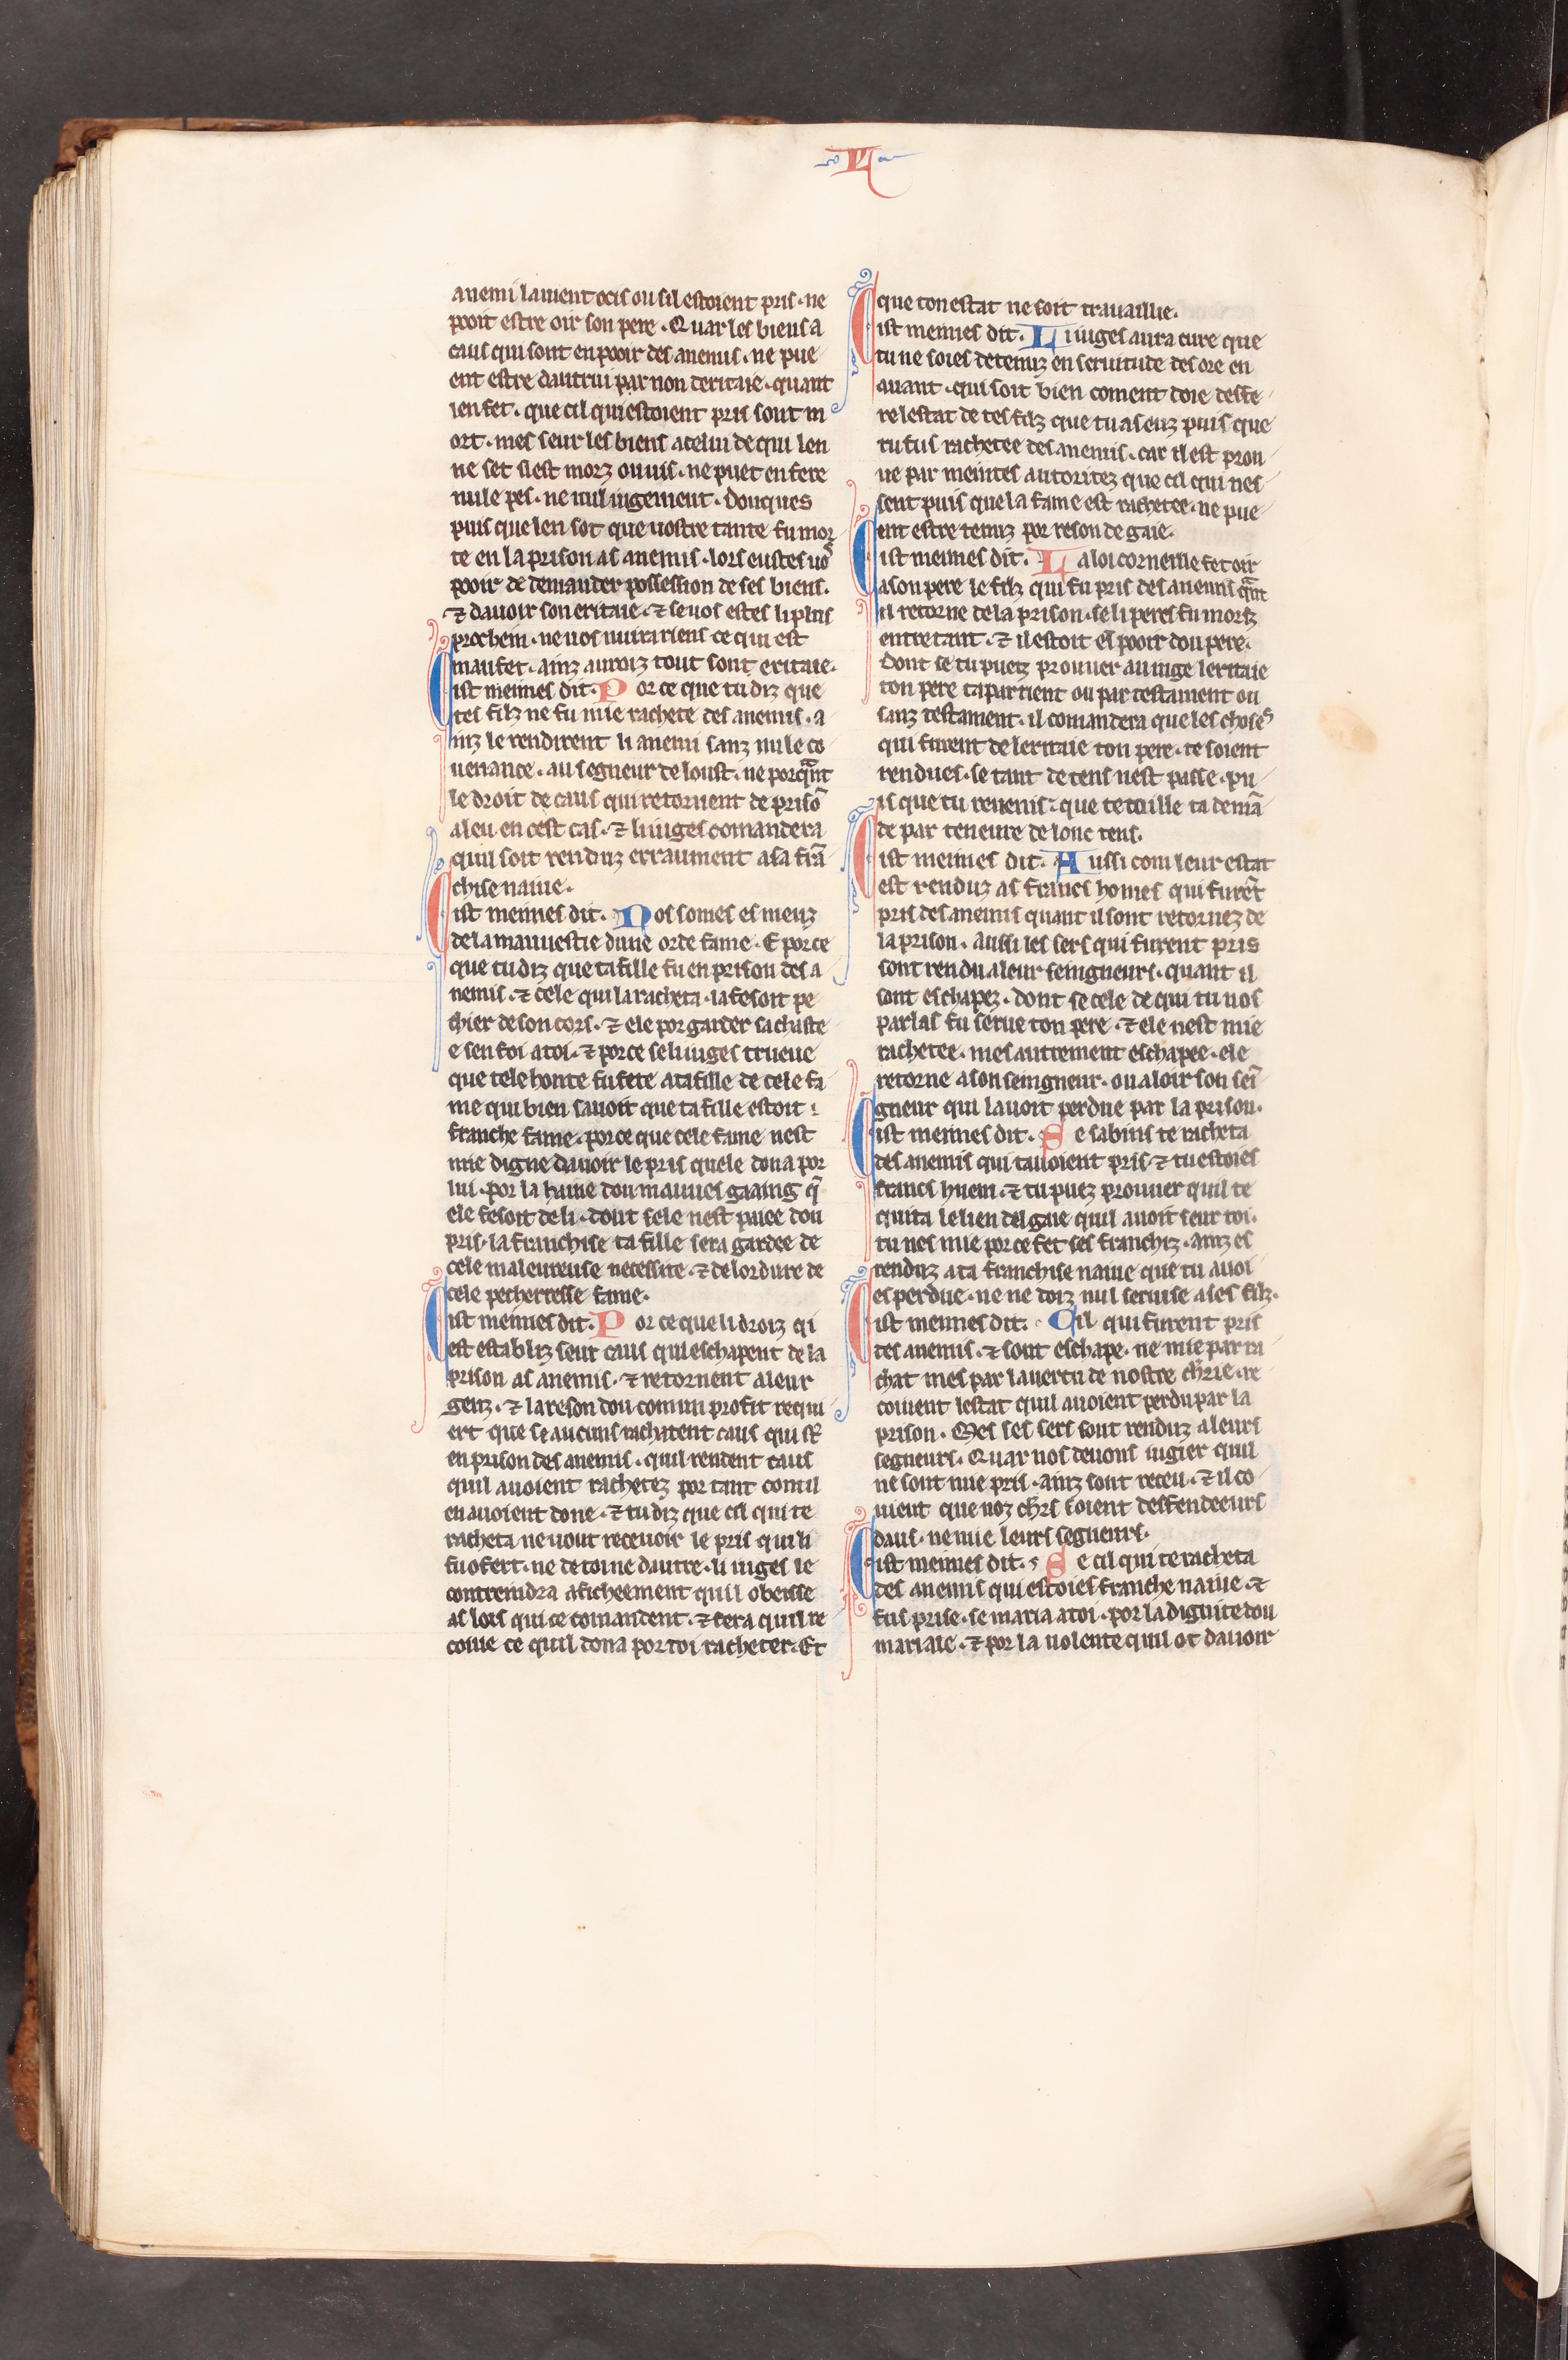 VI
anemi lauient ocis ou sil estoient pris · ne
pooit estre oir son pere · Quar les biens a
caus qui sont en pooir des anemis · ne pue
ent estre dautrui par non deritaie · quant
ien fet · que cil qui estoient pris sont m
ort · mes seur les biens a celui de qui len
ne set sil est morz ou uis · ne puet en fere
nule pes · ne nul iugement · Donques
puis que len sot que uostre tante fu mor
te en la prison as anemis · lors eustes uos̄
pooir de demander possession de ses biens ·
⁊ dauoir son eritaie · ⁊ se uos estes li plus
prochein · ne uos nuira riens ce qui est
mau fet · ainz auroiz tout sont eritaie ·
Cist meimes dit · Por ce que tu diz que
tes filz ne fu mie rachete des anemis · a
inz le rendirent li anemi sanz nule co
uenance · au segneur de loust · ne porq̄nt
le droit de caus qui retornent de prisō
a leu en cest cas · ⁊ li iuges comandera
quil soit renduz erraument a sa frā
chise naiue ·
Cist meimes dit · Nos somes esmeuz
de la mauuestie dune orde fame · E por ce
que tu diz que ta fille fu en prison des a
nemis · ⁊ cele qui la racheta · la fesoit pe
chier de son cors · ⁊ ele por garder sa chaste
e sen foi a toi · ⁊ por ce se li iuges trueue
que tele honte fu fete a ta fille de cele fa
me qui bien sauoit que ta fille estoit
franche fame · por ce que cele fame nest
mie digne dauoir le pris quele dona por
lui · por la haine dou mauues gaaing q̄
ele fesoit de li · dont sele nest paiee dou
pris · la franchise ta fille sera gardee de
cele maleureuse necessite · ⁊ de lordure de
cele pecherresse fame ·
Cist meimes dit · Por ce que li droiz qi
est establiz seur caus qui eschapent de la
prison as anemis · ⁊ retornent a leur
genz · ⁊ la reson dou comun profit requi
ert que se aucuns rachatent caus qui st̄
en prison des anemis · quil rendent caus
quil auoient rachetez por tant com il
en auoient done · ⁊ tu diz que cil qui te
racheta ne uout receuoir le pris qui li
fu ofert · ne de toi ne dautre · li iuges le
contreindra aficheement quil obeisse
as lois qui ce comandent · ⁊ fera quil re
coiue ce quil dona por toi racheter · Et
que ton estat ne soit trauaillie ·
Cist meimes dit · Li iuges aura cure que
tu ne soies detenuz en seruitude des ore en
auant · qui soit bien coment doie deffe
re lestat de tes filz que tu as euz puis que
tu fus rachetee des anemis · car il est prou
ue par meintes autoritez que cil qui nes
sent puis que la fame est rachetee · ne pue
ent estre tenuz por reson de gaie ·
Cist meimes dit · La loi corneille fet oir
a son pere le filz qui fu pris des anemis q̄nt
il retorne de la prison · se li peres fu morz
entretant · ⁊ il estoit el pooir dou pere ·
Dont se tu puez prouuer au iuge leritaie
ton pere tapartient ou par testament ou
sanz testament · il comandera que les choses
qui furent de leritaie ton pere · te soient
rendues · se tant de tens nest passe · pu
is que tu reuenis · que te toille ta demā
de par teneure de lonc tens ·
Cist meimes dit · Aussi com leur estat
est renduz as francs homes qui furēt
pris des anemis quant il sont retornez de
la prison · aussi les sers qui furent pris
sont rendu a leur seingneurs · quant il
sont eschapez · dont se cele de qui tu nos
parlas fu serue ton pere · ⁊ ele nest mie
rachetee · mes autrement eschapee · ele
retorne a son seingneur · ou a loir son sei
gneur qui lauoit perdue par la prison ·
Cist meimes dit · Se sabins te racheta
des anemis qui tauoient pris · ⁊ tu estoies
francs huem · ⁊ tu puez prouuer quil te
quita le lien del gaie quil auoit seur toi ·
tu nes mie por ce fet ses franchiz · ainz es
renduz a ta franchise naiue que tu auoi
es perdue · ne ne doiz nul seruise a ses filz ·
Cist meimes dit · Cil qui furent pris
des anemis · ⁊ sont eschape · ne mie par ra
chat mes par la uertu de nostre ch̄rie · re
coiuent lestat quil auoient perdu par la
prison · Mes les sers sont renduz a leurs
segneurs · Quar nos deuons iugier quil
ne sont mie pris · ainz sont receu · ⁊ il co
uient que noz ch̄rs soient deffendeeurs
daus · ne mie leurs segneurs ·
Cist meimes dit · Se cil qui te racheta
des anemis qui estoies franche naiue · ⁊
fus prise · se maria a toi · por la dignite dou
mariaie · ⁊ por la uolente quil ot dauoir